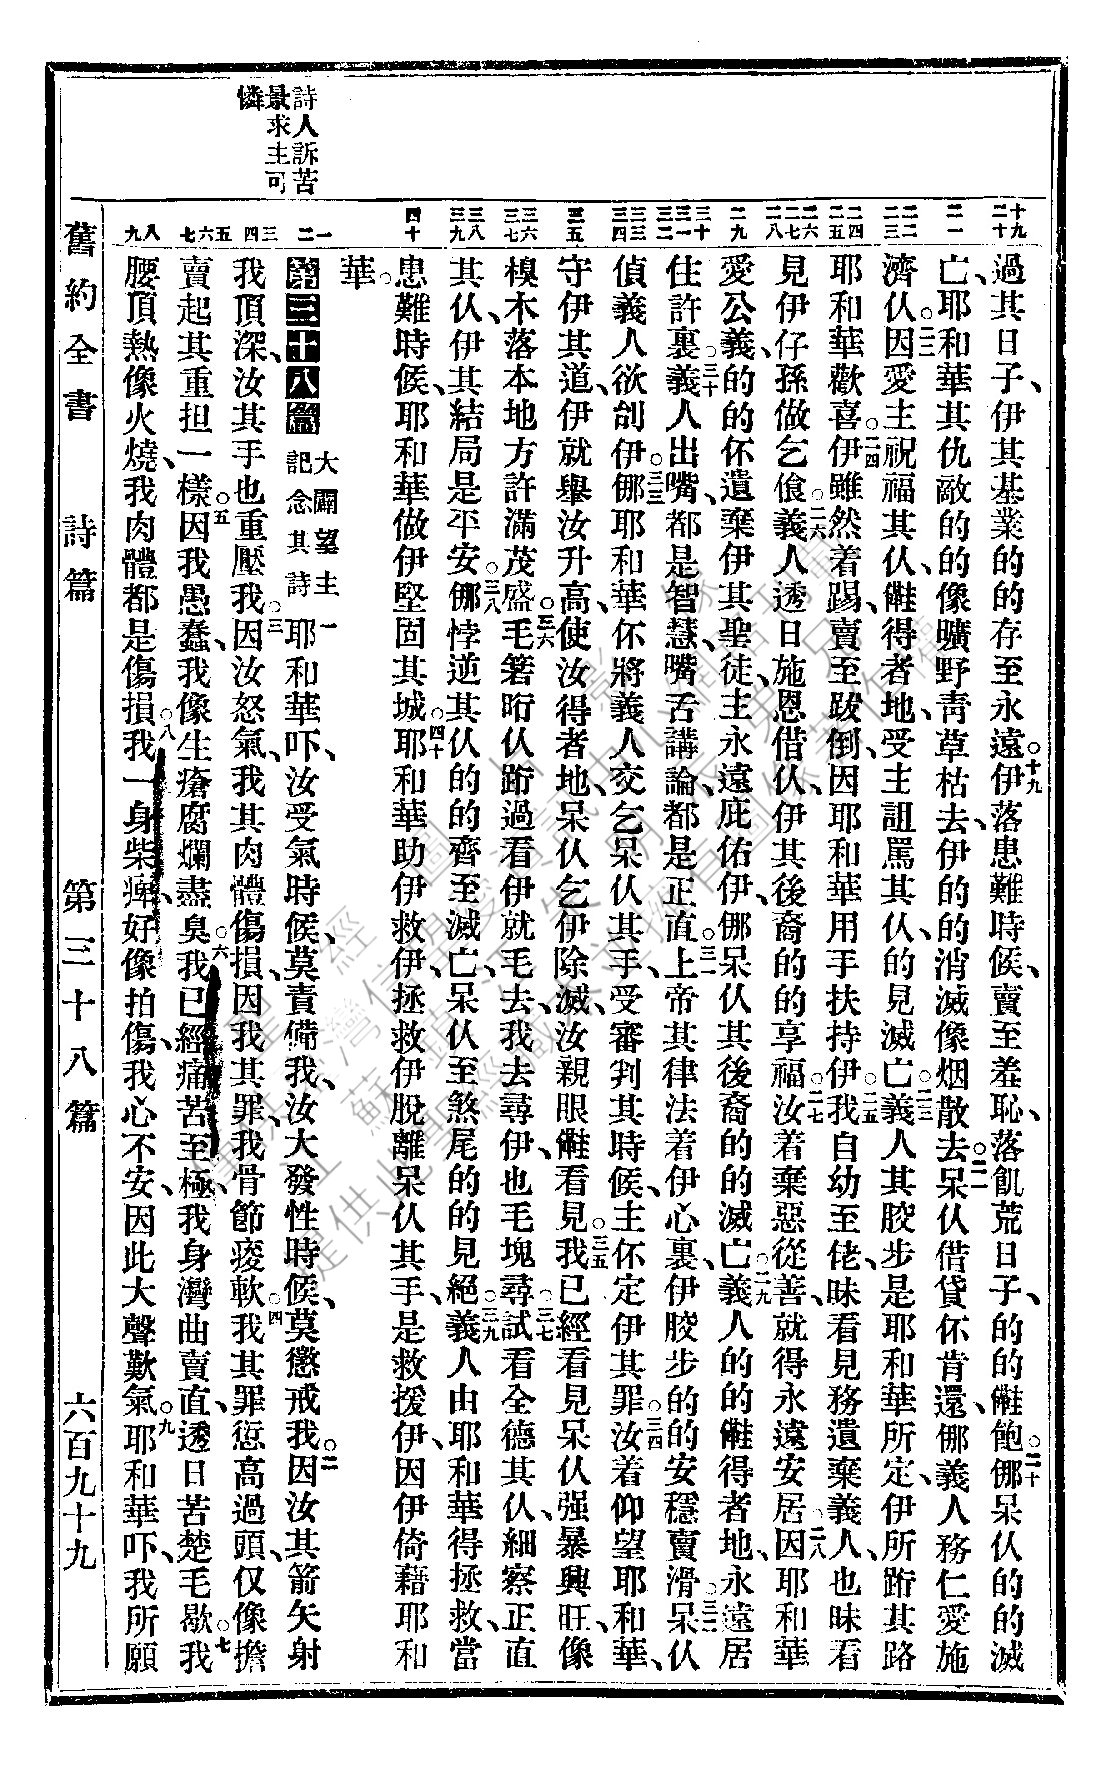 詩人訴苦
景求主可
憐
十九 二十
二一
二二 二三
二四 二五
二六 二七 二八
二九
三十 三一 三二
三三 三四
三五
三六 三七
三八 三九
四十
一 二
三 四
五 六 七
八 九
過其日子、伊其基業的的存至永遠。十九伊落患難時候、賣至羞恥、落飢荒日子的的儺飽。二十倻呆仈的的滅
亡、耶和華其仇敵的的像曠野靑草枯去、伊的的消滅像烟散去。二一呆仈借貸伓肯還、倻義人務仁愛施
濟仈。二二因愛主祝福其仈、儺得者地、受主詛罵其仈的見滅亡。二三義人其骹步是耶和華所定、伊所跱其路
耶和華歡喜。二四伊雖然着踢、賣至跋倒、因耶和華用手扶持伊。二五我自幼至佬、昧看見務遺棄義人、也昧看
見伊仔孫做乞飡。二六義人透日施恩借仈、伊其後裔的的享福。二七汝着棄惡從善、就得永遠安居。二八因耶和華
愛公義、的的伓遺棄伊其聖徒、主永遠庇佑伊、倻呆仈其後裔的的滅亡。二九義人的的儺得者地、永遠居
住許裏。三十義人出嘴、都是智慧、嘴舌講論、都是正直。三一上帝其律法着伊心裏、伊骹步的的安穩賣滑。三二呆仈
偵義人欲刣伊。三三倻耶和華伓將義人交乞呆仈其手、受審判其時候、主伓定伊其罪。三四汝着仰望耶和華、
守伊其道、伊就舉汝升高、使汝得者地、呆仈乞伊除滅、汝親眼儺看見。三五我已經看見呆仈强暴興旺、像
樹木落本地方許滿茂盛。三六毛箬㫰仈跱過看伊就毛去、我去尋伊也毛塊尋。三七試看全德其仈、細察正直
其仈、伊其結局是平安。三八倻悖逆其仈的的齊至滅亡、呆仈至煞尾的的見絕。三九義人由耶和華得拯救、當
患難時候、耶和華做伊堅固其城。四十耶和華助伊救伊、拯救伊脫離呆仈其手、是救援伊、因伊倚藉耶和
華。
第三十八篇 大闢望主記念其詩 一耶和華吓、汝受氣時候、莫責備我、汝大發性時候、莫懲戒我。二因汝其箭矢射
我頂深、汝其手也重壓我。三因汝怒氣、我其肉體傷損、因我其罪、我骨節痠軟。四我其罪愆高過頭、仅像擔
賣起其重担一樣。五因我愚蠢、我像生瘡腐爛盡臭。六我已經痛苦至極、我身灣曲賣直、透日苦楚毛歇。七我
腰頂熱像火燒、我肉體都是傷損。八我一身柴痺、好像拍傷、我心不安、因此大聲歎氣。九耶和華吓、我所願
舊約全書 詩篇 第三十八篇 六百九十九